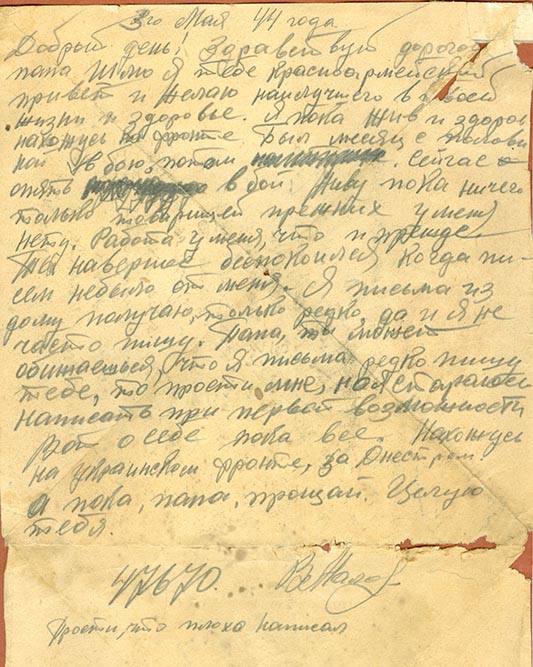 3го Мая 44 года.
Добрый день! Здравствуй дорогой
папа Шлю я тебе красноармейский
привет и желаю наилучшего в твоей
жизни и здоровье. Я пока жив и здоров
нахожусь на фронте Был месяц с полови
ной в бою, потом. Сейчас
опять в бой. Живу пока ничего
только товарищей прежних у меня
нету. Работа у меня, что и прежде
Ты наверное беспокоился когда пи-
сем небыло от меня. Я письма из
дому получаю, только редко, да и я не
часто пишу. Папа, ты может
обижаешься, что я письма редко пишу
тебе, то прости мне, но я стараюсь
написать при первой возможности
Вот о себе пока все. Нахожусь
на украинском фронте, за Днестром.
А пока, папа, прощай. Целую
тебя.
47670.
Прости, что плохо написал